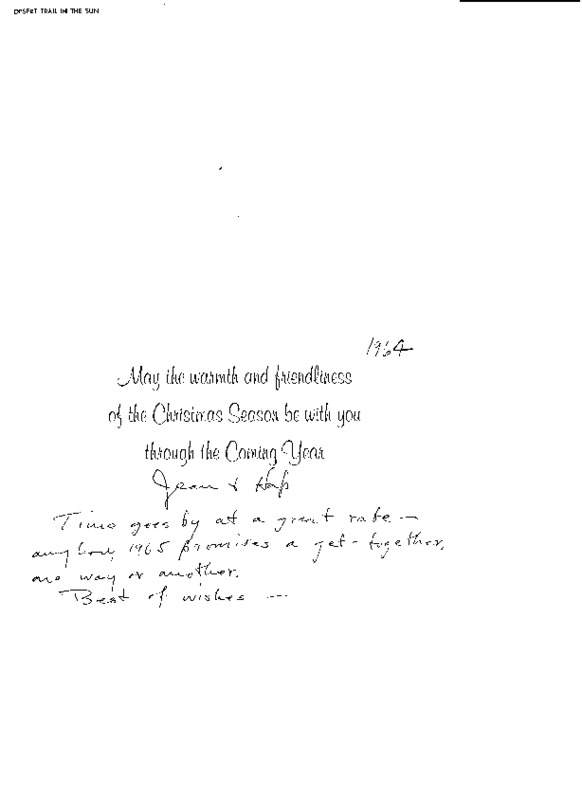 DESERT TRAIL IN THE SUN
1964
May the warmth and friendliness
of the Christmas Season be with you
through the Coming Year
Jean &
Time goes by at a great rate —
anyhow, 1965 promises a get-together,
one way or another.
Best of wishes ---